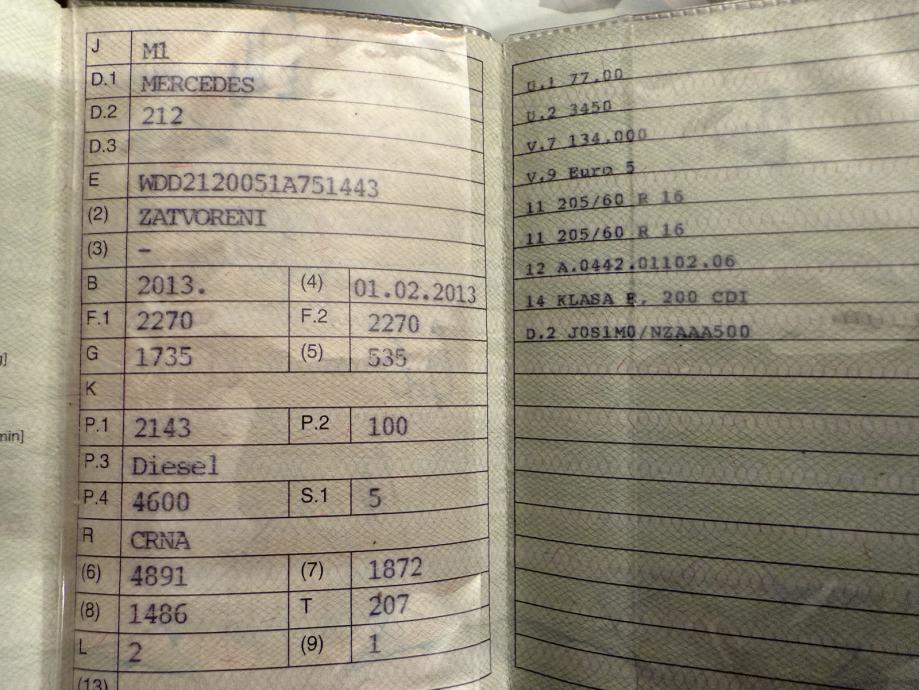 g]
min]
J M1
D.1 MERCEDES
D.2 212
D.3
E WDD2120051A751443
(2) ZATVORENI
(3) -
B 2013. (4) 01.02.2013
F.1 2270 F.2 2270
G 1735 (5) 535
K
P.1 2143 P.2 100
P.3 Diesel
P.4 4600 S.1 5
R CRNA
(6) 4891 (7) 1872
(8) 1486 T 207
L 2 (9) 1
(13)
U.1 77.00
U.2 3450
V.7 134.000
V.9 Euro 5
11 205/60 R 16
11 205/60 R 16
12 A.0442.01102.06
14 KLASA E, 200 CDI
D.2 J0S1M0/NZAAA500